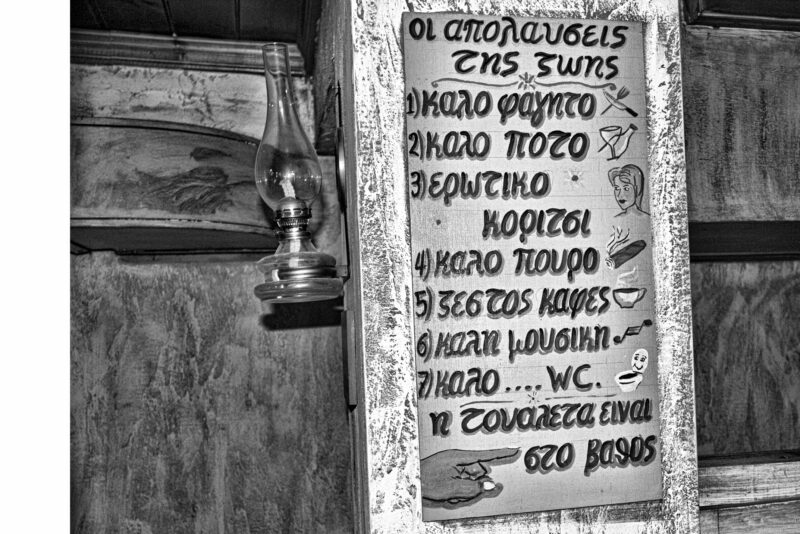 οι απολαυσεις
της ζωης
1) καλο φαγητο
2) καλο ποτο
3) ερωτικο
κοριτσι
4) καλο πουρο
5) ζεστος καφες
6) καλη μουσικη
7) καλο .... WC.
η τουαλετα ειναι
στο βαθος